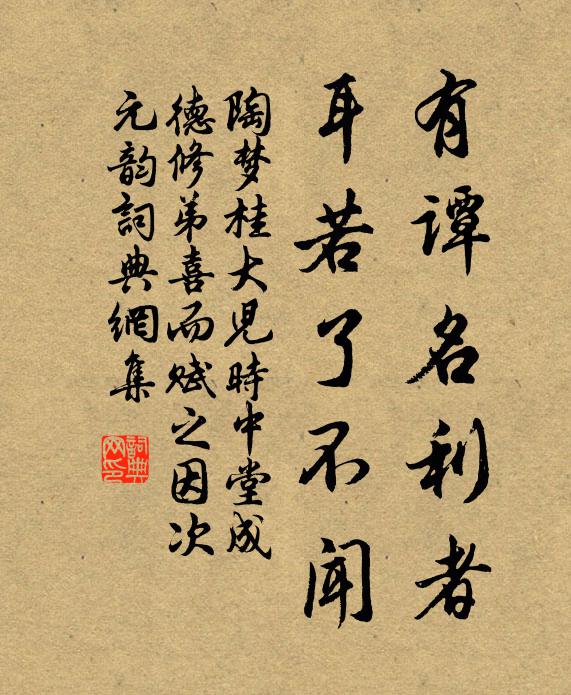 有谭名利者
耳若了不闻
陶梦桂大儿時中堂成
德修弟喜而赋之因次
元韵詞典網集
詞典
网印